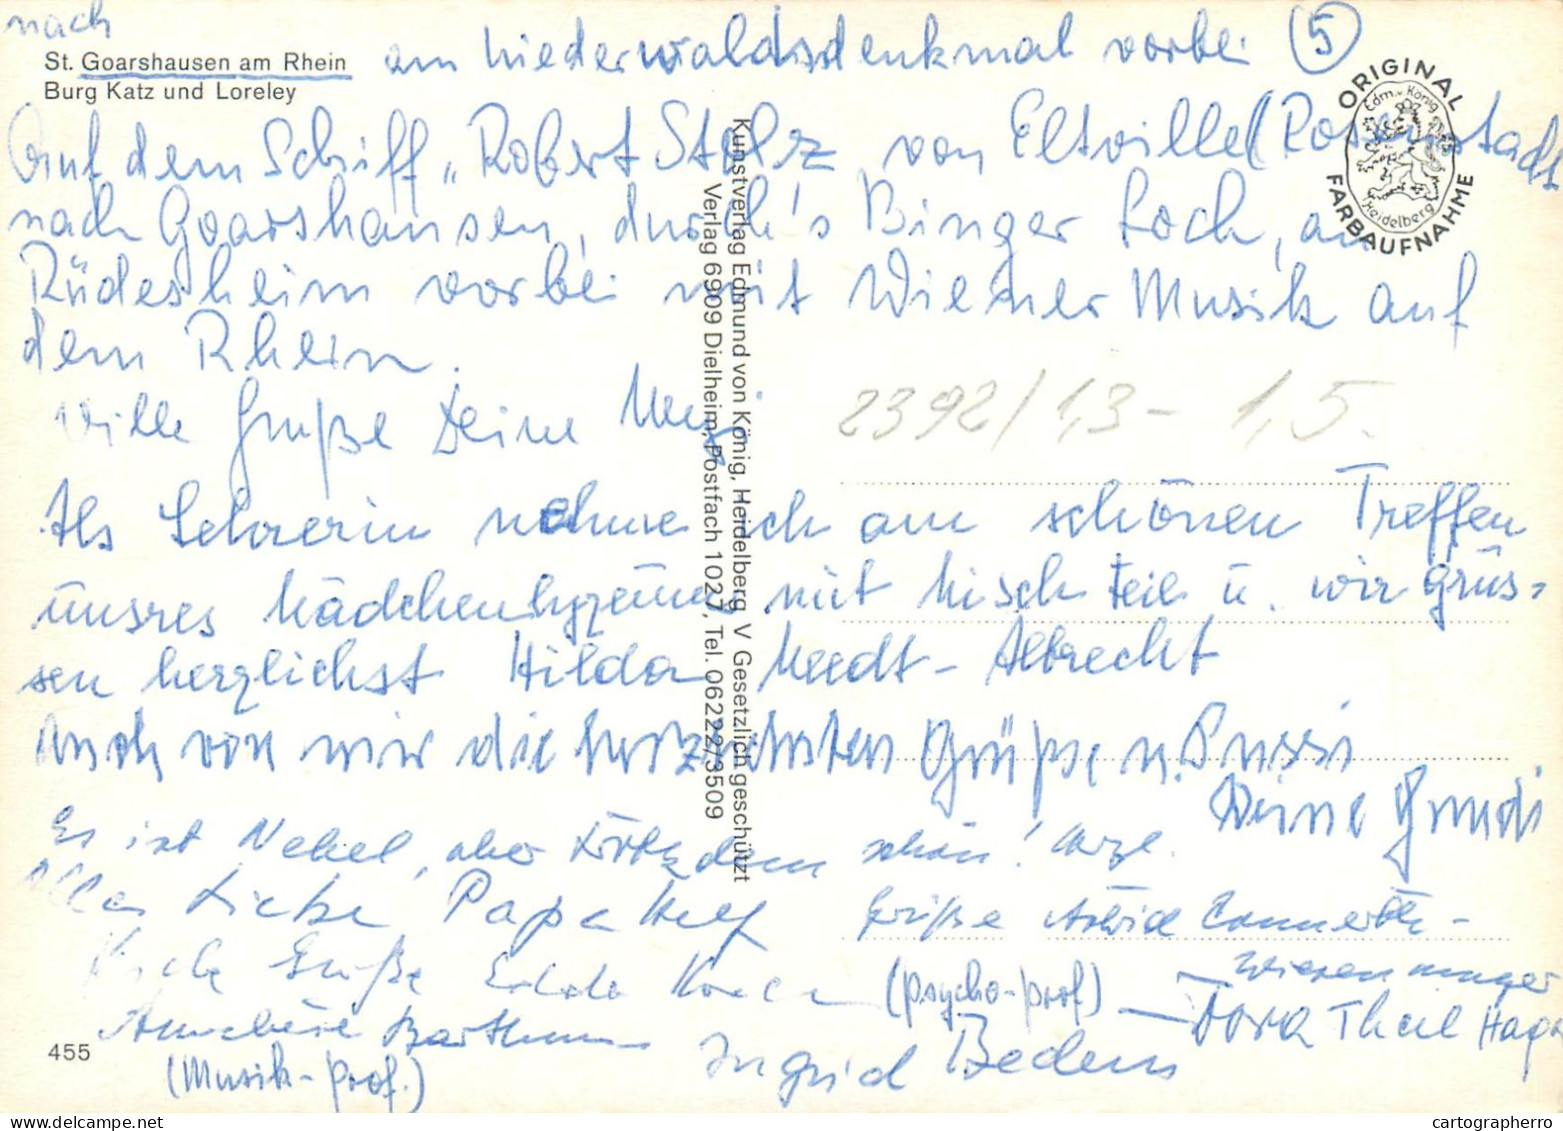 nach
St. Goarshausen am Rhein
Burg Katz und Loreley
am Niederwaldsdenkmal vorbei (5)
ORIGINAL
Edm. v. König
Heidelberg
FARBAUFNAHME
Auf dem Schiff „Robert Stolz von Eltville (Rosenstadt
nach Goarshausen, durch's Binger Loch, an
Rüdesheim vorbei mit Wiener Musik auf
dem Rhein.
Viele Grüße Deine
2392/1,3- 1,5.
Kunstverlag Edmund von König, Heidelberg V Gesetzlich geschützt
Verlag 6909 Dielheim, Postfach 1027, Tel. 06222/3509
Als Lehrerin nehme ich am schönen Treffen
unsres Mädchenlyzeums mit Misch teil u. wir grüs-
sen herzlichst Hilda Meedt-Albrecht
Auch von mir die herzlichsten Grüße u. Pussi
Deine Gundi
Es ist Nebel, aber trotzdem schön!
Alles Liebe Papa
Grüße Astrid Connerth-
Wiesenmayer
Grüße
(psycho-prof)
Dora Theil
Annelüse Barthmes
(Musik-prof.)
Ingrid
455
cartographerro